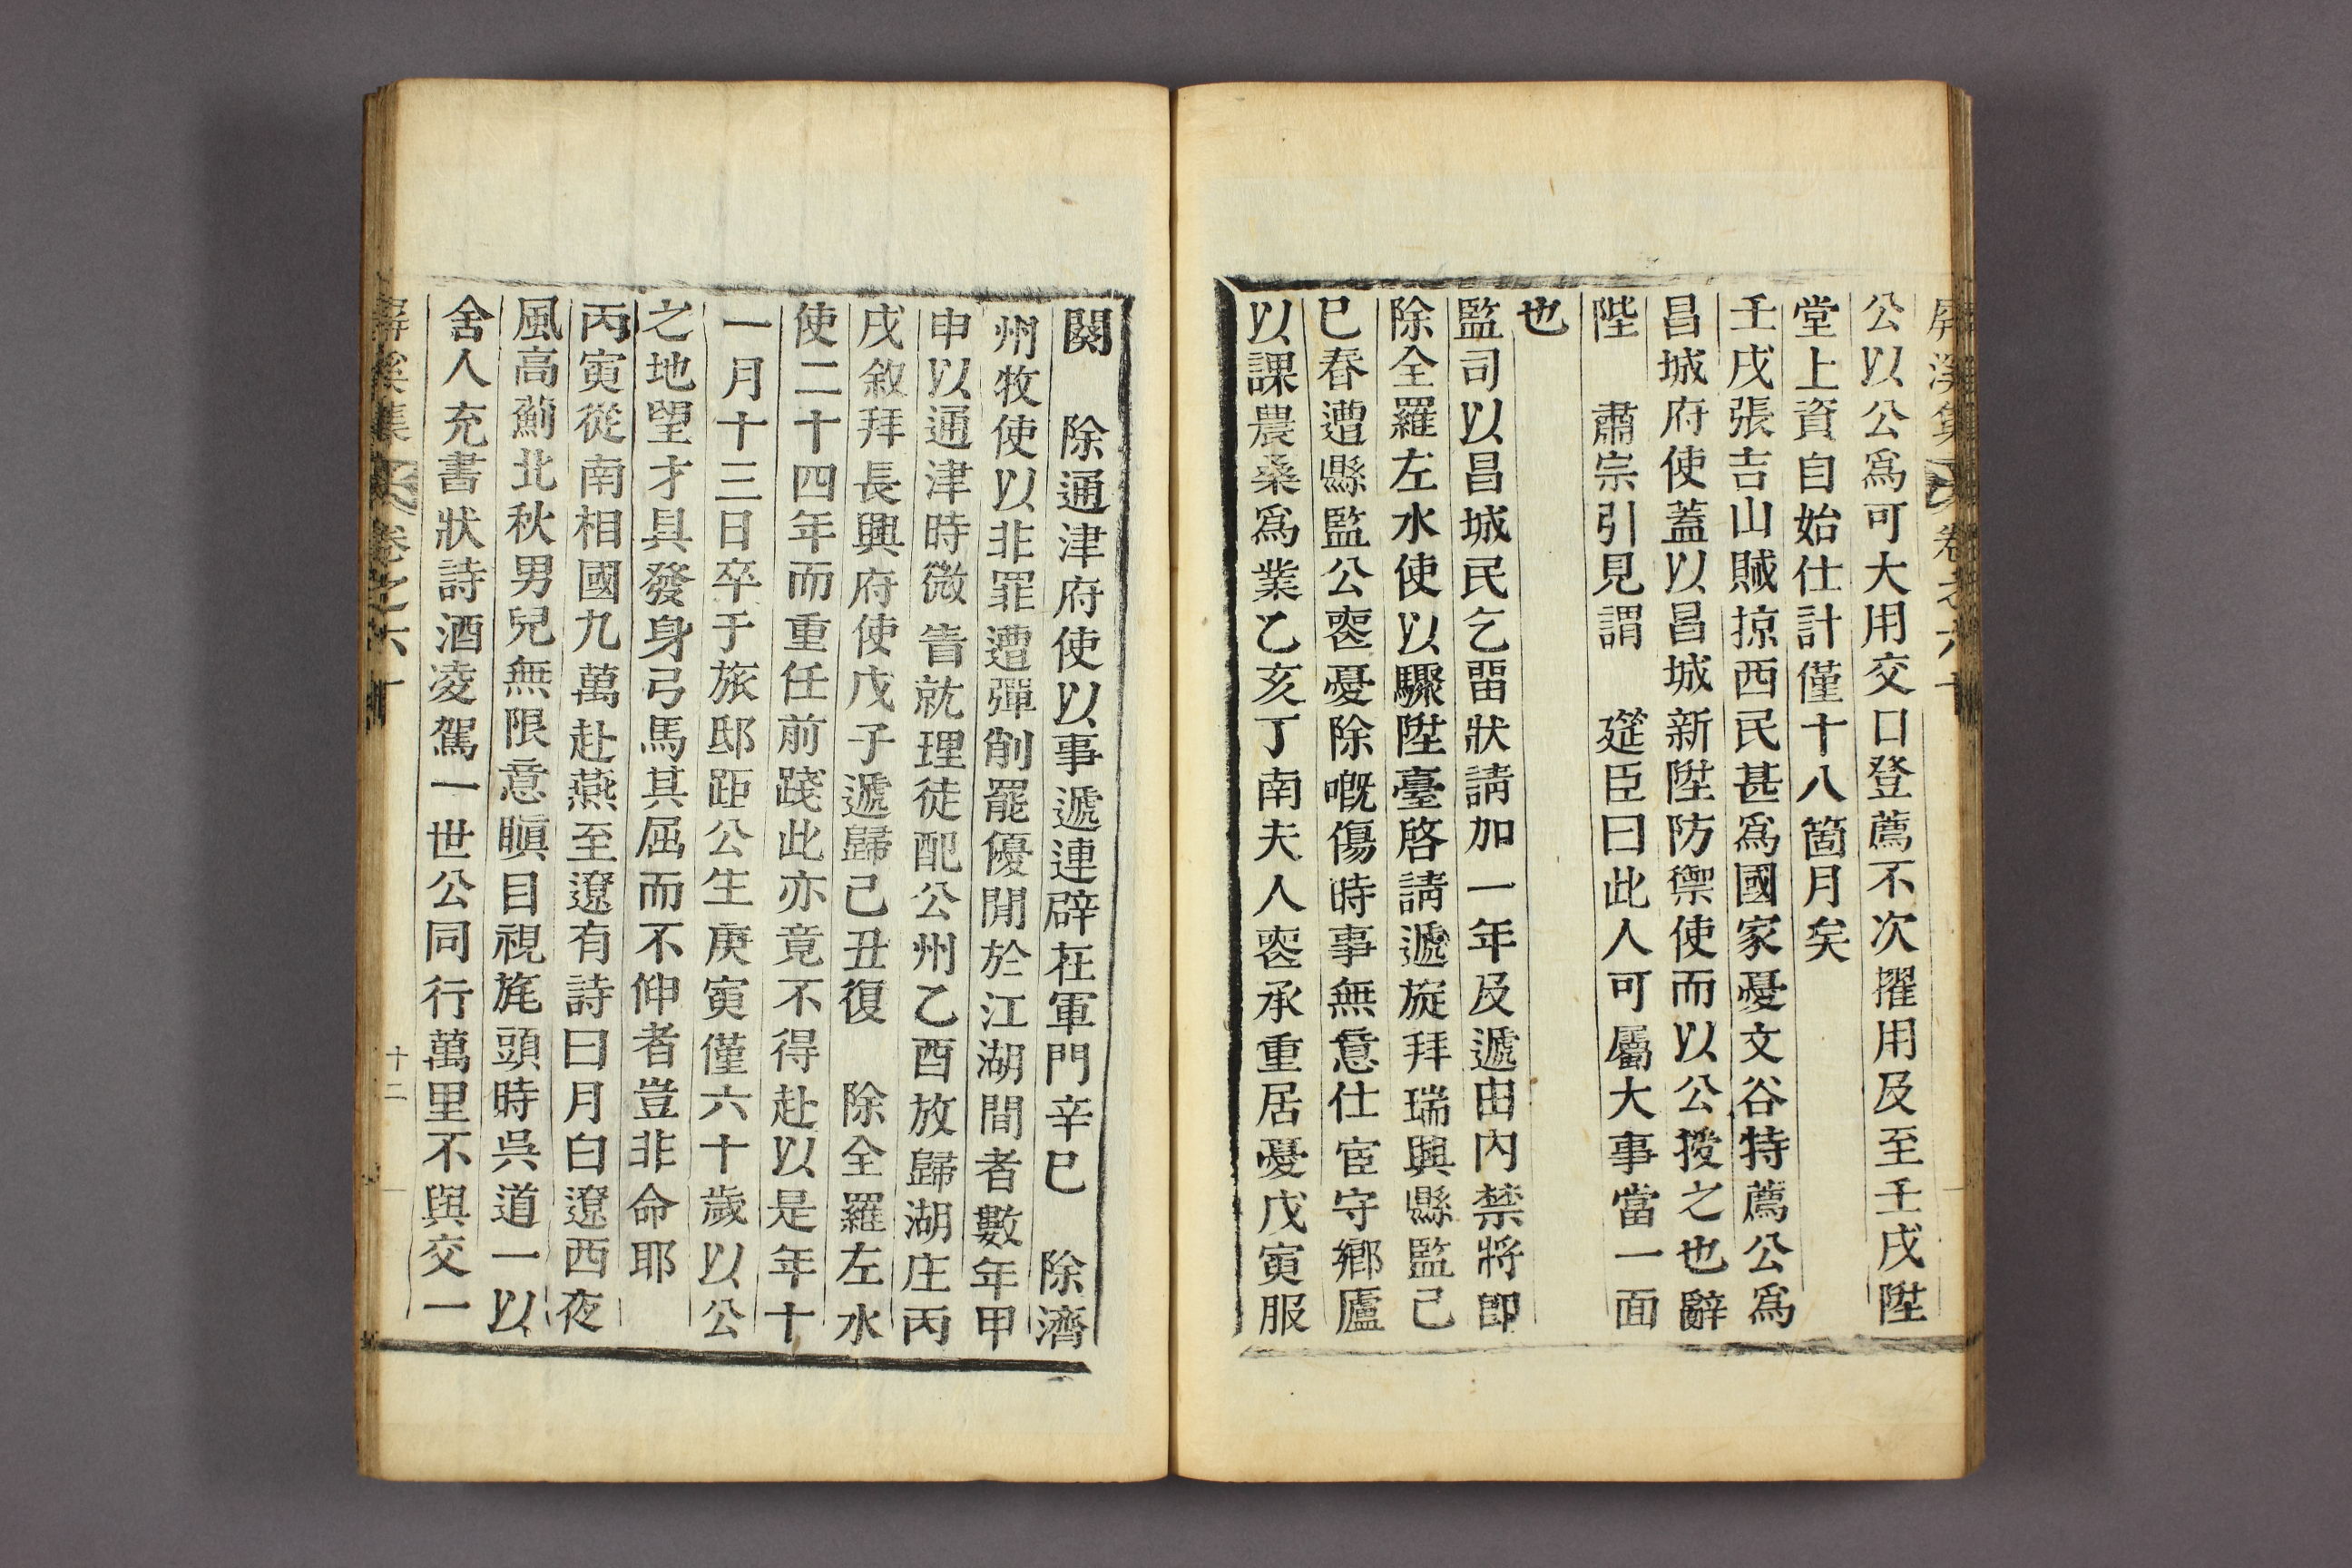 屛溪集 卷之六十
公以公爲可大用交口登薦不次擢用及至壬戌陞
堂上資自始仕計僅十八箇月矣
壬戌張吉山賊掠西民甚爲國家憂文谷特薦公爲
昌城府使蓋以昌城新陞防禦使而以公授之也辭
陛 肅宗引見謂 筵臣曰此人可屬大事當一面
也
監司以昌城民乞留狀請加一年及遞由內禁將卽
除全羅左水使以驟陞臺啓請遞旋拜瑞興縣監己
巳春遭縣監公喪憂除嘅傷時事無意仕宦守鄕廬
以課農桑爲業乙亥丁南夫人喪承重居憂戊寅服
闋 除通津府使以事遞連辟在軍門辛巳 除濟
州牧使以非罪遭彈削罷優閒於江湖間者數年甲
申以通津時微眚就理徒配公州乙酉放歸湖庄丙
戌敘拜長興府使戊子遞歸己丑復 除全羅左水
使二十四年而重任前踐此亦竟不得赴以是年十
一月十三日卒于旅邸距公生庚寅僅六十歲以公
之地望才具發身弓馬其屈而不伸者豈非命耶
丙寅從南相國九萬赴燕至遼有詩曰月白遼西夜
風高薊北秋男兒無限意瞋目視旄頭時吳道一以
舍人充書狀詩酒凌駕一世公同行萬里不與交一
屛溪集 卷之六十 十二